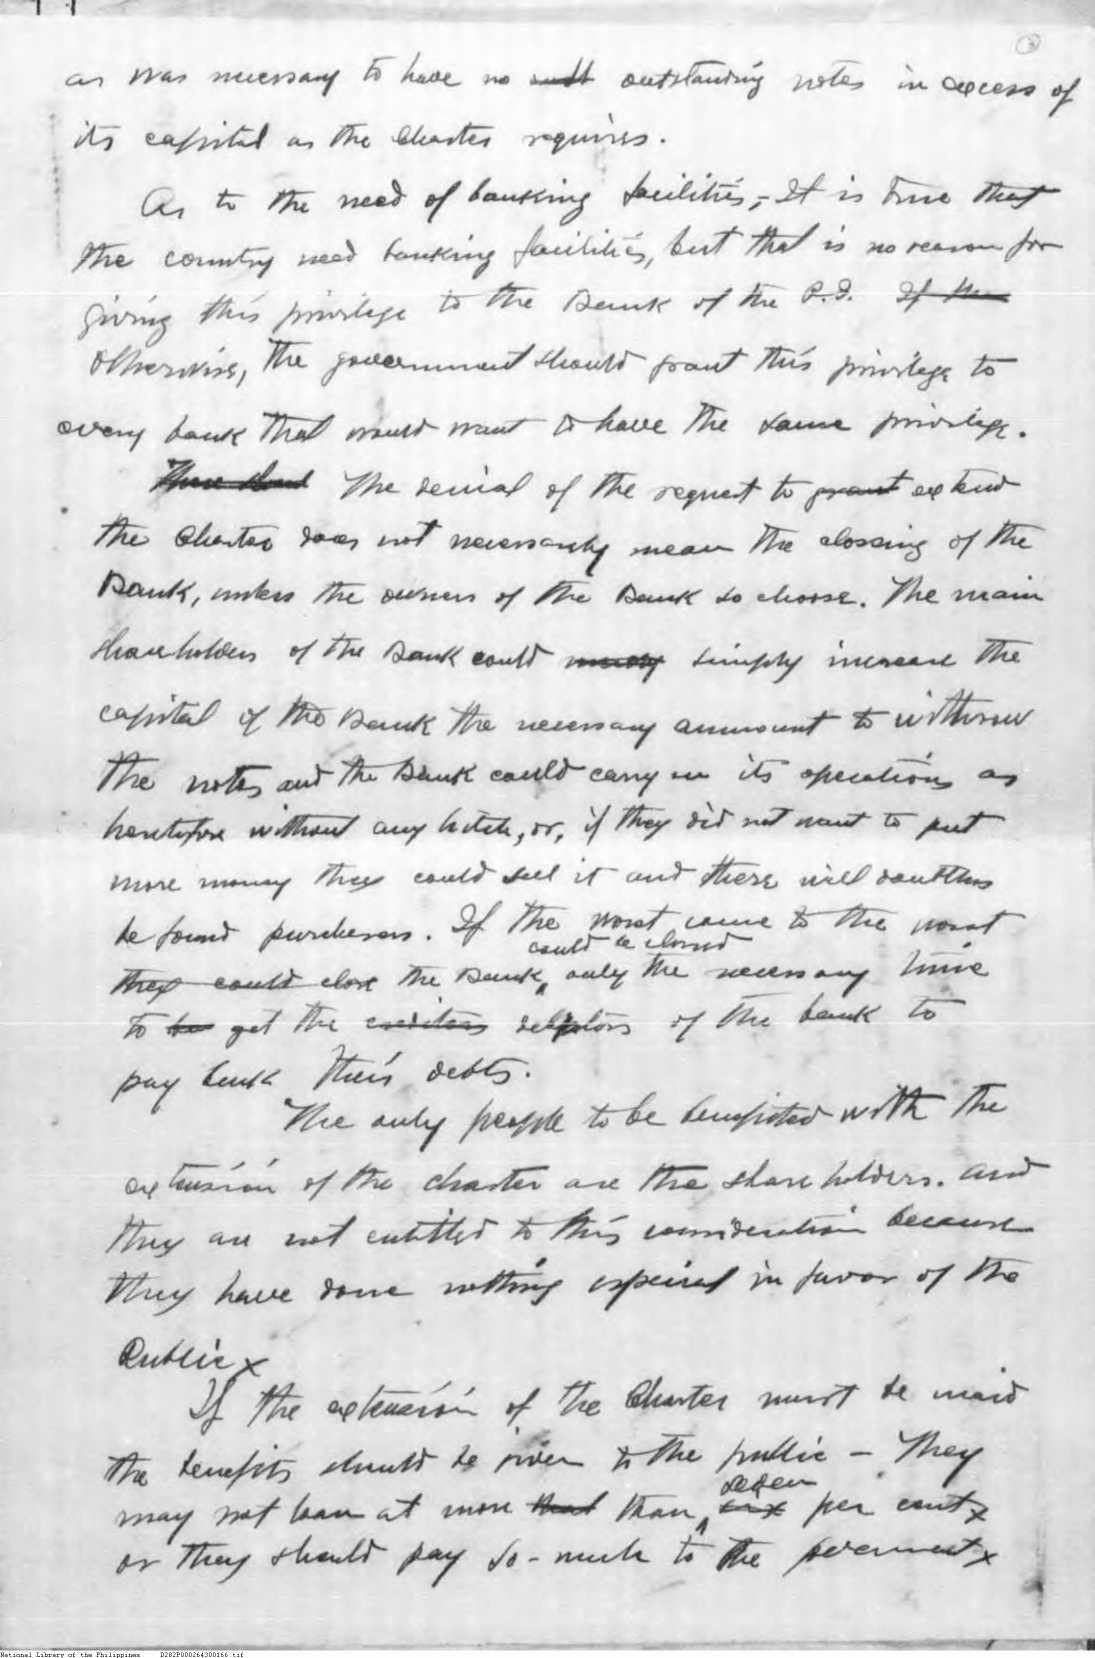 3
as was necessary to have no outstanding notes in excess of
its capital as the Charter requires.
As to the need of banking facilities, - It is true that
the country need banking facilities, but that is no reason for
giving this privilege to the Bank of the P.I. If the
Otherwise, the government should grant this privilege to
every bank that would want to have the same privilege.
The denial of the request to grant extend
the Charter does not necessarily mean the closing of the
Bank, unless the owners of the Bank so choose. The main
shareholders of the Bank could simply increase the
capital of the Bank the necessary ammount to withdraw
the notes and the Bank could carry on its operations as
heretofore without any hitch, or, if they did not want to put
more money they could sell it and there will doubtless
be found purchasers. If the worst came to the worst
could be closed
they could close the Bank, only the necessary time
to be get the creditors debtors of the bank to
pay back their debts.
The only people to be benefited with the
extension of the charter are the shareholders. And
they are not entitled to this consideration because
they have done nothing especial in favor of the
Public x
If the extension of the Charter must be maid
the benefits should be given to the public - They
seven
may not loan at more that than six per cent x
or they should pay so - much to the government x
National Library of the Philippines D282P000264300166.tif